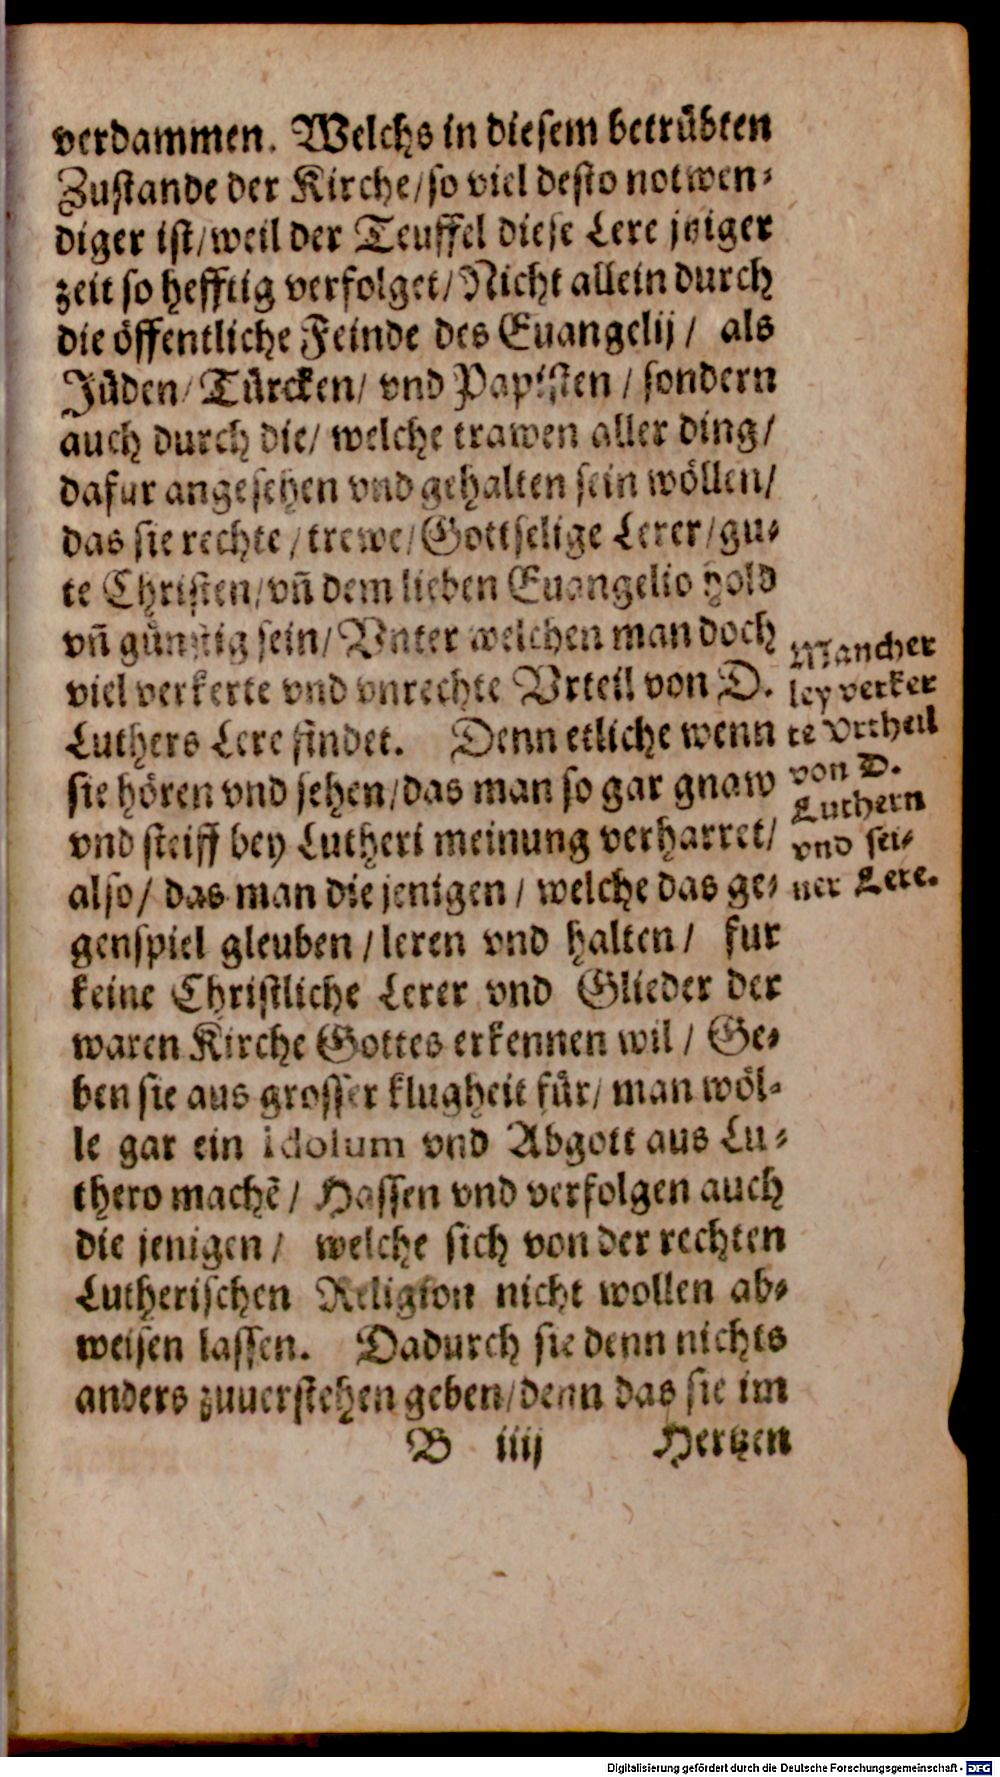 verdammen. Welchs in diesem betrübten
Zustande der Kirche/so viel desto notwen-
diger ist/weil der Teuffel diese Lere jtziger
zeit so hefftig verfolget/Nicht allein durch
die öffentliche Feinde des Euangelij/ als
Jüden/Türcken/ vnd Papisten/ sondern
auch durch die/ welche trawen aller ding/
dafur angesehen vnd gehalten sein wöllen/
das sie rechte/trewe/Gottselige Lerer/gu-
te Christen/vñ dem lieben Euangelio hold
vñ günstig sein/Vnter welchen man doch
viel verkerte vnd vnrechte Vrteil von D.
Luthers Lere findet. Denn etliche wenn
sie hören vnd sehen/das man so gar gnaw
vnd steiff bey Lutheri meinung verharret/
also/ das man die jenigen/ welche das ge-
genspiel gleuben/leren vnd halten/ fur
keine Christliche Lerer vnd Glieder der
waren Kirche Gottes erkennen wil/ Ge-
ben sie aus grosser klugheit für/ man wöl-
le gar ein idolum vnd Abgott aus Lu-
thero machē/ Hassen vnd verfolgen auch
die jenigen/ welche sich von der rechten
Lutherischen Religion nicht wollen ab-
weisen lassen. Dadurch sie denn nichts
anders zuuerstehen geben/denn das sie im
B iiij Hertzen
Mancher
ley verker
te Vrtheil
von D.
Luthern
vnd sei-
ner Lere.
Digitalisierung gefördert durch die Deutsche Forschungsgemeinschaft - DFG